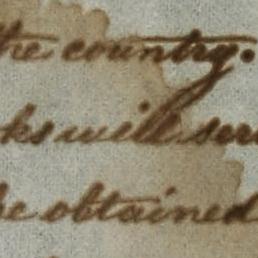 the country.
ks will ser
be obtained